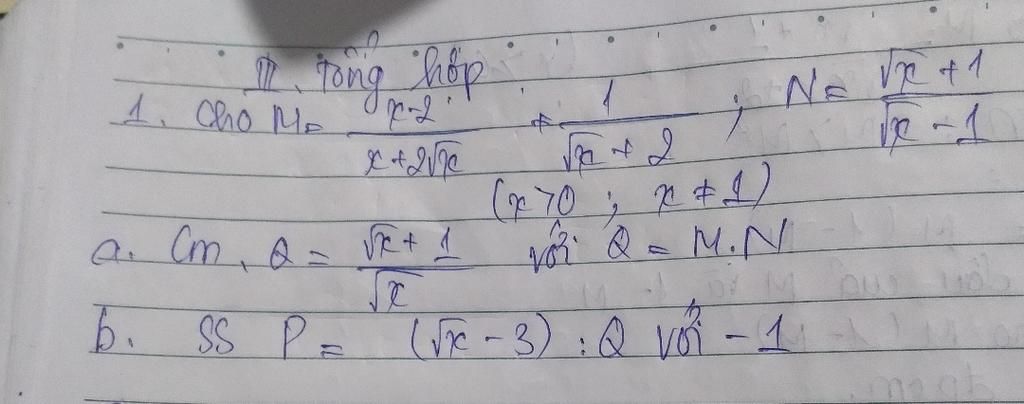 III. Tổng hợp
1. Cho M = (x-2)/(x+2√x) + 1/(√x+2) ; N = (√x+1)/(√x-1)
(x>0 ; x≠1)
a. Cm. Q = (√x+1)/√x với Q = M.N
b. SS P = (√x-3) : Q với -1